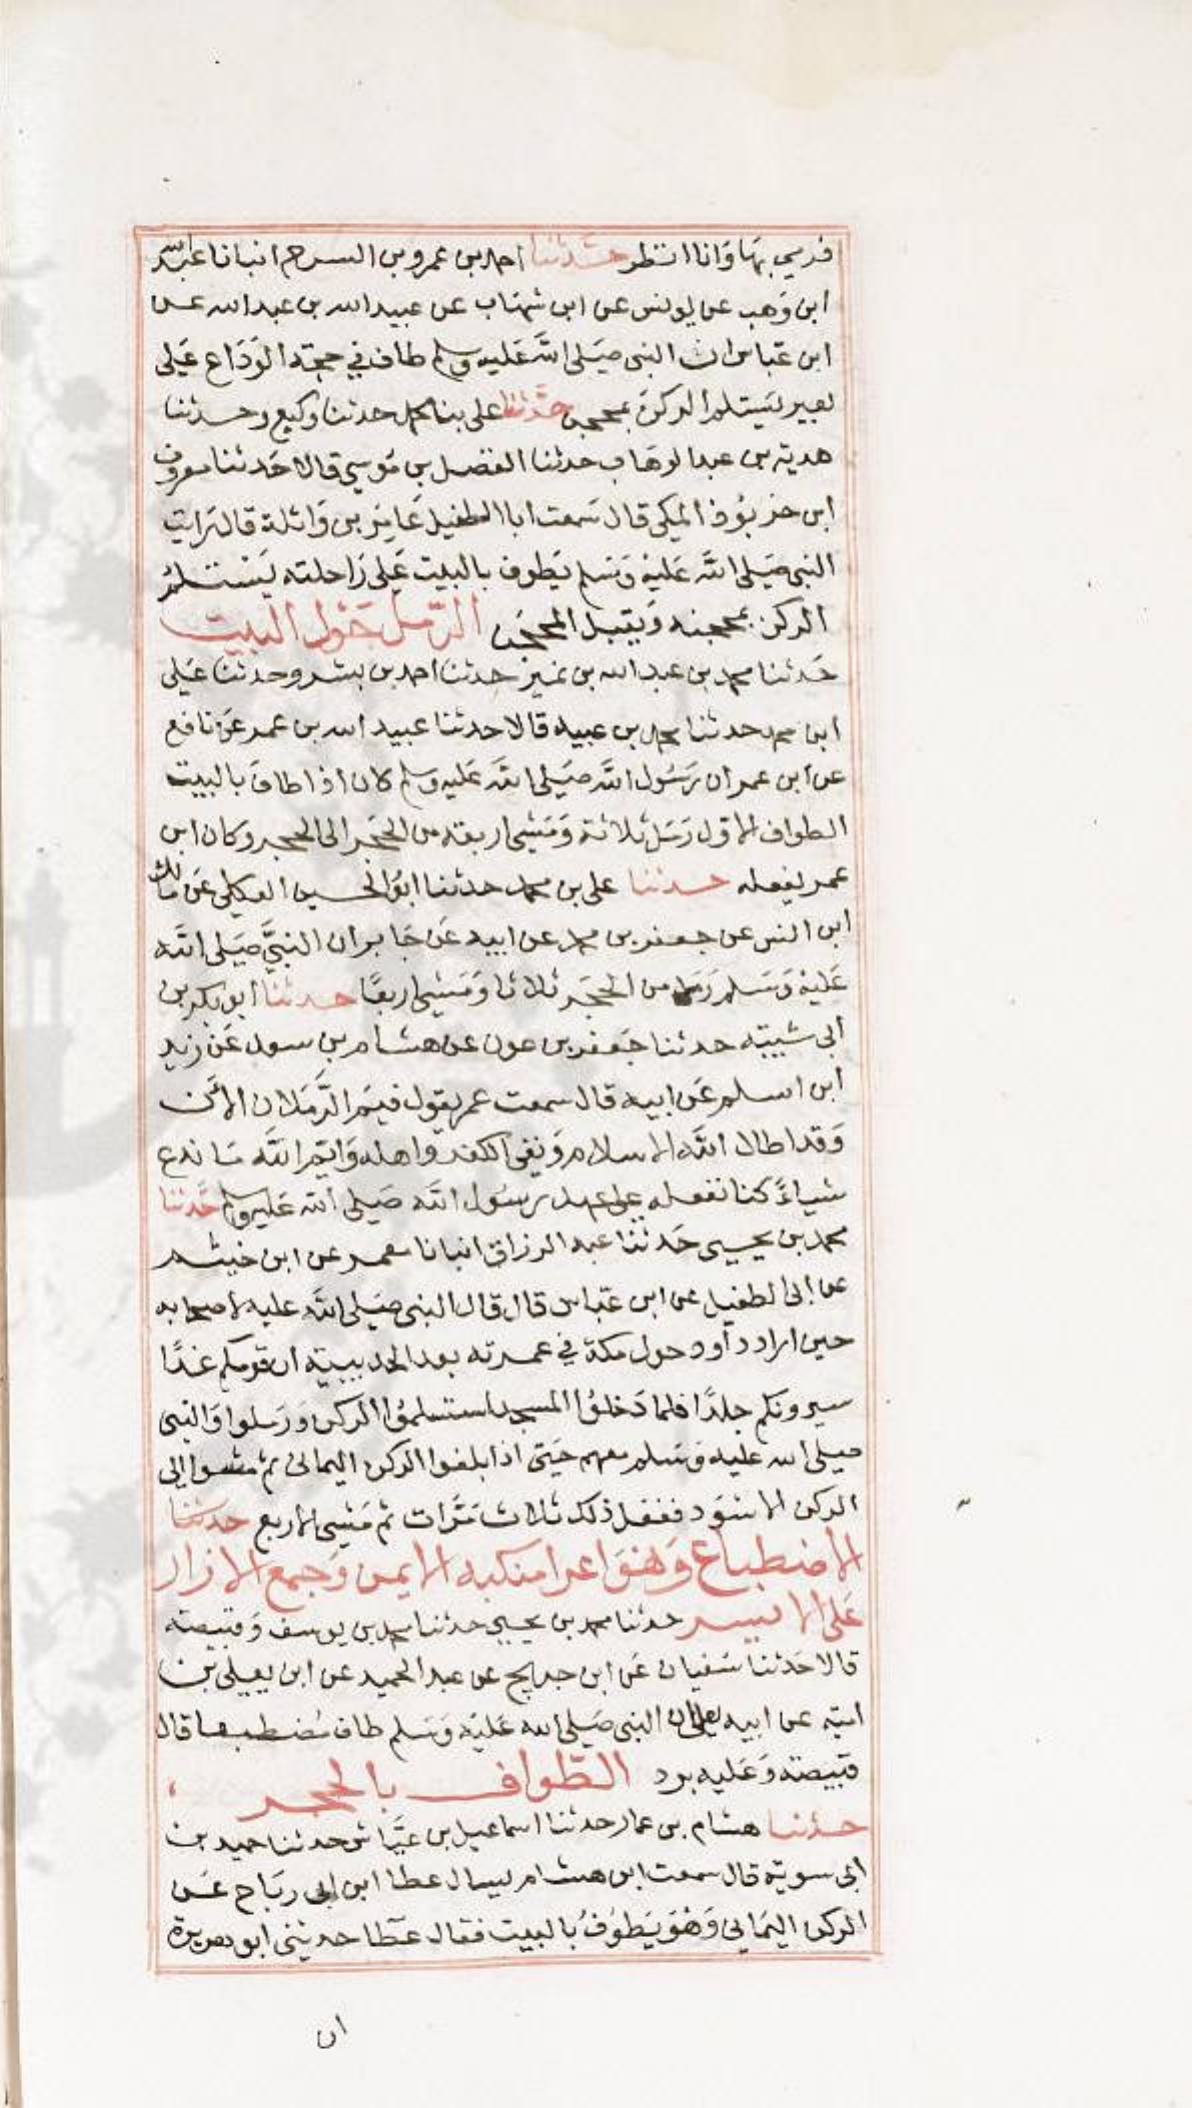 فرمي بها وانا انظر حدثنا احمد بن عمرو بن السرح انبانا عبد الله
ابن وهب عن يونس عن ابن شهاب عن عبيد الله بن عبد الله عن
ابن عباس ان النبي صلى الله عليه وسلم طاف في حجة الوداع على
بعير يستلم الركن بمحجن حدثنا علي بن محمد حدثنا وكيع وحدثنا
هدية بن عبد الوهاب حدثنا الفضل بن موسى قالا حدثنا معروف
ابن خربوذ المكي قال سمعت ابا الطفيل عامر بن واثلة قال رايت
النبي صلى الله عليه وسلم يطوف بالبيت على راحلته يستلم
الركن بمحجنه ويقبل المحجن الرمل حول البيت
حدثنا محمد بن عبد الله بن نمير حدثنا احمد بن بشر وحدثنا علي
ابن محمد حدثنا محمد بن عبيد قالا حدثنا عبيد الله بن عمر عن نافع
عن ابن عمر ان رسول الله صلى الله عليه وسلم كان اذا طاف بالبيت
الطواف الاول رمل ثلاثة ومشى اربعة من الحجر الى الحجر وكان ابن
عمر يفعله حدثنا علي بن محمد حدثنا ابو الحسين العكلي عن مالك
ابن انس عن جعفر بن محمد عن ابيه عن جابر ان النبي صلى الله
عليه وسلم رمل من الحجر ثلاثا ومشى اربعا حدثنا ابو بكر بن
ابي شيبة حدثنا جعفر بن عون عن هشام بن سعد عن زيد
ابن اسلم عن ابيه قال سمعت عمر يقول فيم الرملان الان
وقد اطال الله الاسلام ونفى الكفر واهله وايم الله ما ندع
شياء كنا نفعله على عهد رسول الله صلى الله عليه وسلم حدثنا
محمد بن يحيى حدثنا عبد الرزاق انبانا معمر عن ابن خيثم
عن ابي الطفيل عن ابن عباس قال قال النبي صلى الله عليه لاصحابه
حين ارادوا دخول مكة في عمرته بعد الحديبية ان قومكم غدا
سيرونكم جلدا فلما دخلوا المسجد استلموا الركن ورملوا والنبي
صلى الله عليه وسلم معهم حتى اذا بلغوا الركن اليماني ثم مشوا الى
الركن الاسود ففعل ذلك ثلاث مرات ثم مشى الاربع حدثنا
الاضطباع وهو اعرا منكبه الايمن وجمع الازار
على الايسر حدثنا محمد بن يحيى حدثنا محمد بن يوسف وقبيصة
قالا حدثنا سفيان عن ابن جريج عن عبد الحميد عن ابن يعلى بن
امية عن ابيه يعلى ان النبي صلى الله عليه وسلم طاف مضطبعا قال
قبيصة وعليه برد الطواف بالحجر
حدثنا هشام بن عمار حدثنا اسماعيل بن عياش حدثنا حميد بن
ابي سوية قال سمعت ابن هشام يسال عطا ابن ابي رباح عن
الركن اليماني وهو يطوف بالبيت فقال عطا حدثني ابو هريرة
ان